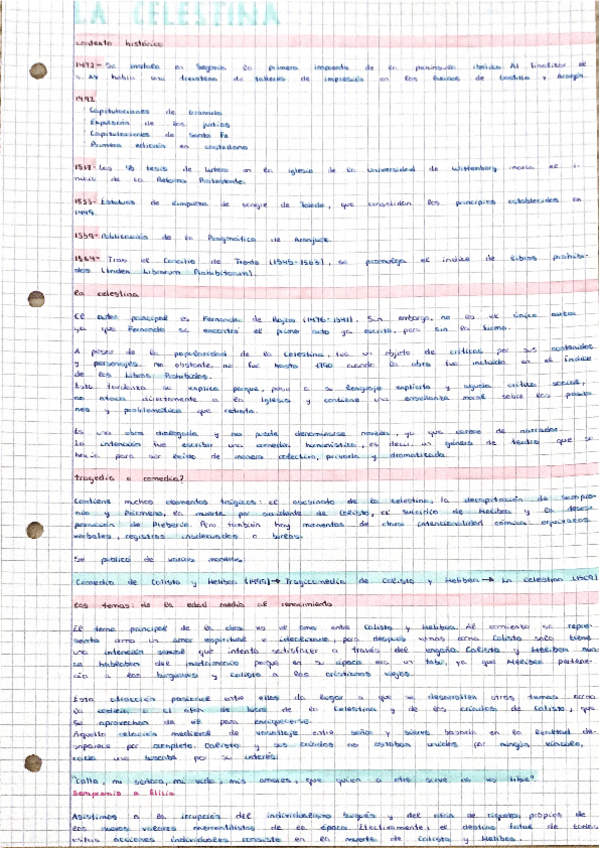 LA CELESTINA
contexto histórico
1472- Se instala en Segovia la primera imprenta de la península ibérica. Al finalizar el
s. XV había una treintena de talleres de impresión en los Reinos de Castilla y Aragón.
1492
Capitulaciones de Granada
Expulsión de los judíos
Capitulaciones de Santa Fe
Primera edición en castellano
1517- Las 95 tesis de Lutero en la iglesia de la Universidad de Wittenberg marca el i-
nicio de la Reforma Protestante.
Estatutos de limpieza de sangre de Toledo, que consolidan los principios establecidos en
1449.
1559- Publicación de la Pragmática de Aranjuez.
1564- Tras el Concilio de Trento (1545-1563), se promulga el índice de libros prohibi-
dos (Index Librorum Prohibitorum).
la celestina
El autor principal es Fernando de Rojas (1476-1541). Sin embargo, no es el único autor
ya que Fernando se encontró el primer acto ya escrito, pero sin la firma.
A pesar de la popularidad de la Celestina, fue un objeto de críticas por sus contenidos
y personajes. no obstante, no fue hasta cuando la obra fue incluida en el índice
de los libros Prohibidos.
Esta tardanza se explica porque, pese a su lenguaje explícito y aguda crítica social,
no ataca directamente a la Iglesia y contiene una enseñanza moral sobre las pasio-
nes y problemática que relata.
Es una obra dialogada y no puede denominarse novela, ya que carece de narrador.
La intención fue escribir una comedia humanística, es decir, un género de teatro que se
hacía para ser leído de manera colectiva, privada y dramatizada.
tragedia o comedia?
Contiene muchos elementos trágicos: el asesinato de la celestina, la decapitación de Sempro-
nio y Pármeno, la muerte por accidente de Calisto, el suicidio de Melibea y la deses-
peración de Pleberio. Pero también hay momentos de clara intencionalidad cómica: equívocos
verbales, registros inadecuados o
Se publicó de varias maneras.
Comedia de Calisto y Melibea (1499) → Tragicomedia de Calisto y Melibea → La Celestina
los temas: de la edad media al renacimiento
El tema principal de la obra es el amor entre Calisto y Melibea. Al comienzo se repre-
senta como un amor espiritual e idealizado, pero después vemos como Calisto solo tiene
una intención sexual que intenta satisfacer a través del engaño. Calisto y Melibea nun-
ca hablaban del matrimonio porque en su época era un tabú, ya que Melibea pertene-
cía a los burgueses y Calisto a los cristianos viejos.
Esta atracción pasional entre ellos da lugar a que se desarrollen otros temas como
la codicia o el afán de lucro de la Celestina y de los criados de Calisto, que
se aprovechan de él para enriquecerse.
Aquella relación medieval de vasallaje entre señor y siervo basada en la lealtad de-
saparece por completo. Calisto y sus criados no estaban unidos por ningún vínculo,
cada uno buscaba por su interés.
"Calla, mi señora, mi vida, mis amores, que quien a otro sirve no es libre".
Sempronio a Elicia
Asistimos a la irrupción del individualismo burgués y del afán de riquezas propios de
los nuevos valores mercantilistas de la época. Efectivamente; el destino fatal de todas
estas acciones individuales consiste en la muerte de Calisto y Melibea.